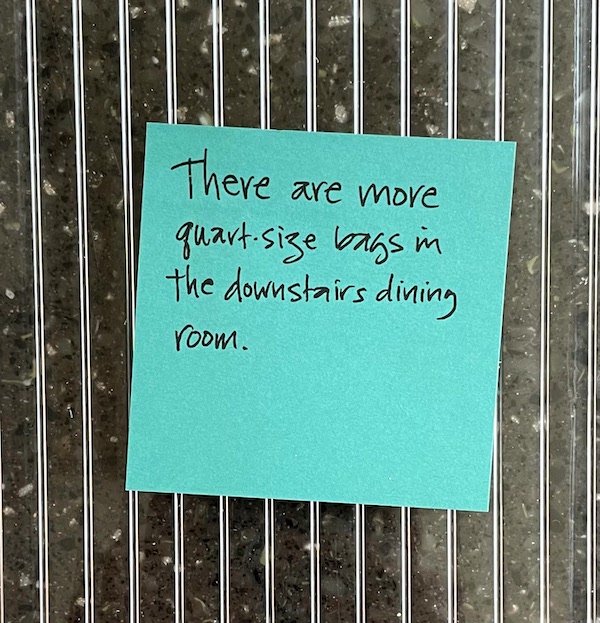 There are more
quart-size bags in
the downstairs dining
room.